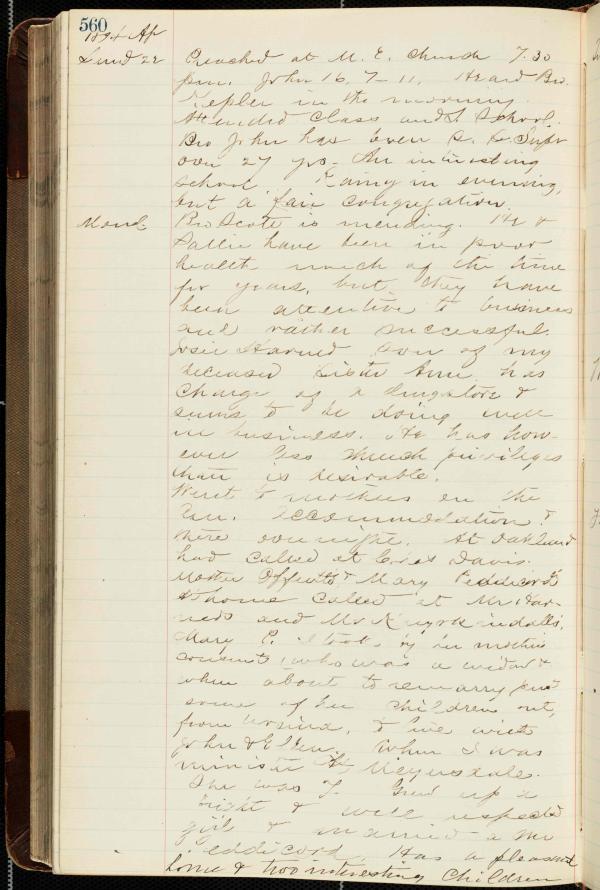 560
1894 Ap
Sund 22 Preached at M. E. Church 7.30
pm. John 16, 7-11. Heard Bro.
Kepler in the morning.
Attended Class and S School.
Bro John has been S. S. Supr
over 27 yrs. An interesting
school. Rainy in evening,
but a fair congregation.
Mond. Bro Scott is mending. He &
Sallie have been in poor
health much of the time
for years, but they have
been attentive to business
and rather successful.
Josie Harned son of my
deceased Sister Anne has
charge of a drugstore &
seems to be doing well
in business. He has how-
ever less church privileges
than is desirable.
Went to mothers on the
Un. accommodation &
there over night. At Oakland
had called at Chas Davis.
Mother Offutts & Mary Peddicords
At home called at Mr Har-
neds and Mr Kuykindalls.
Mary P. I took by her mothers
consent, who was a widow &
when about to remarry put
some of her children out,
from Ursina, to live with
John & Ellen. When I was
minister at Meyersdale.
She was 7. Grew up a
bright & well respected
girl & married a Mr
Peddicord. Has a pleasant
home & two interesting children